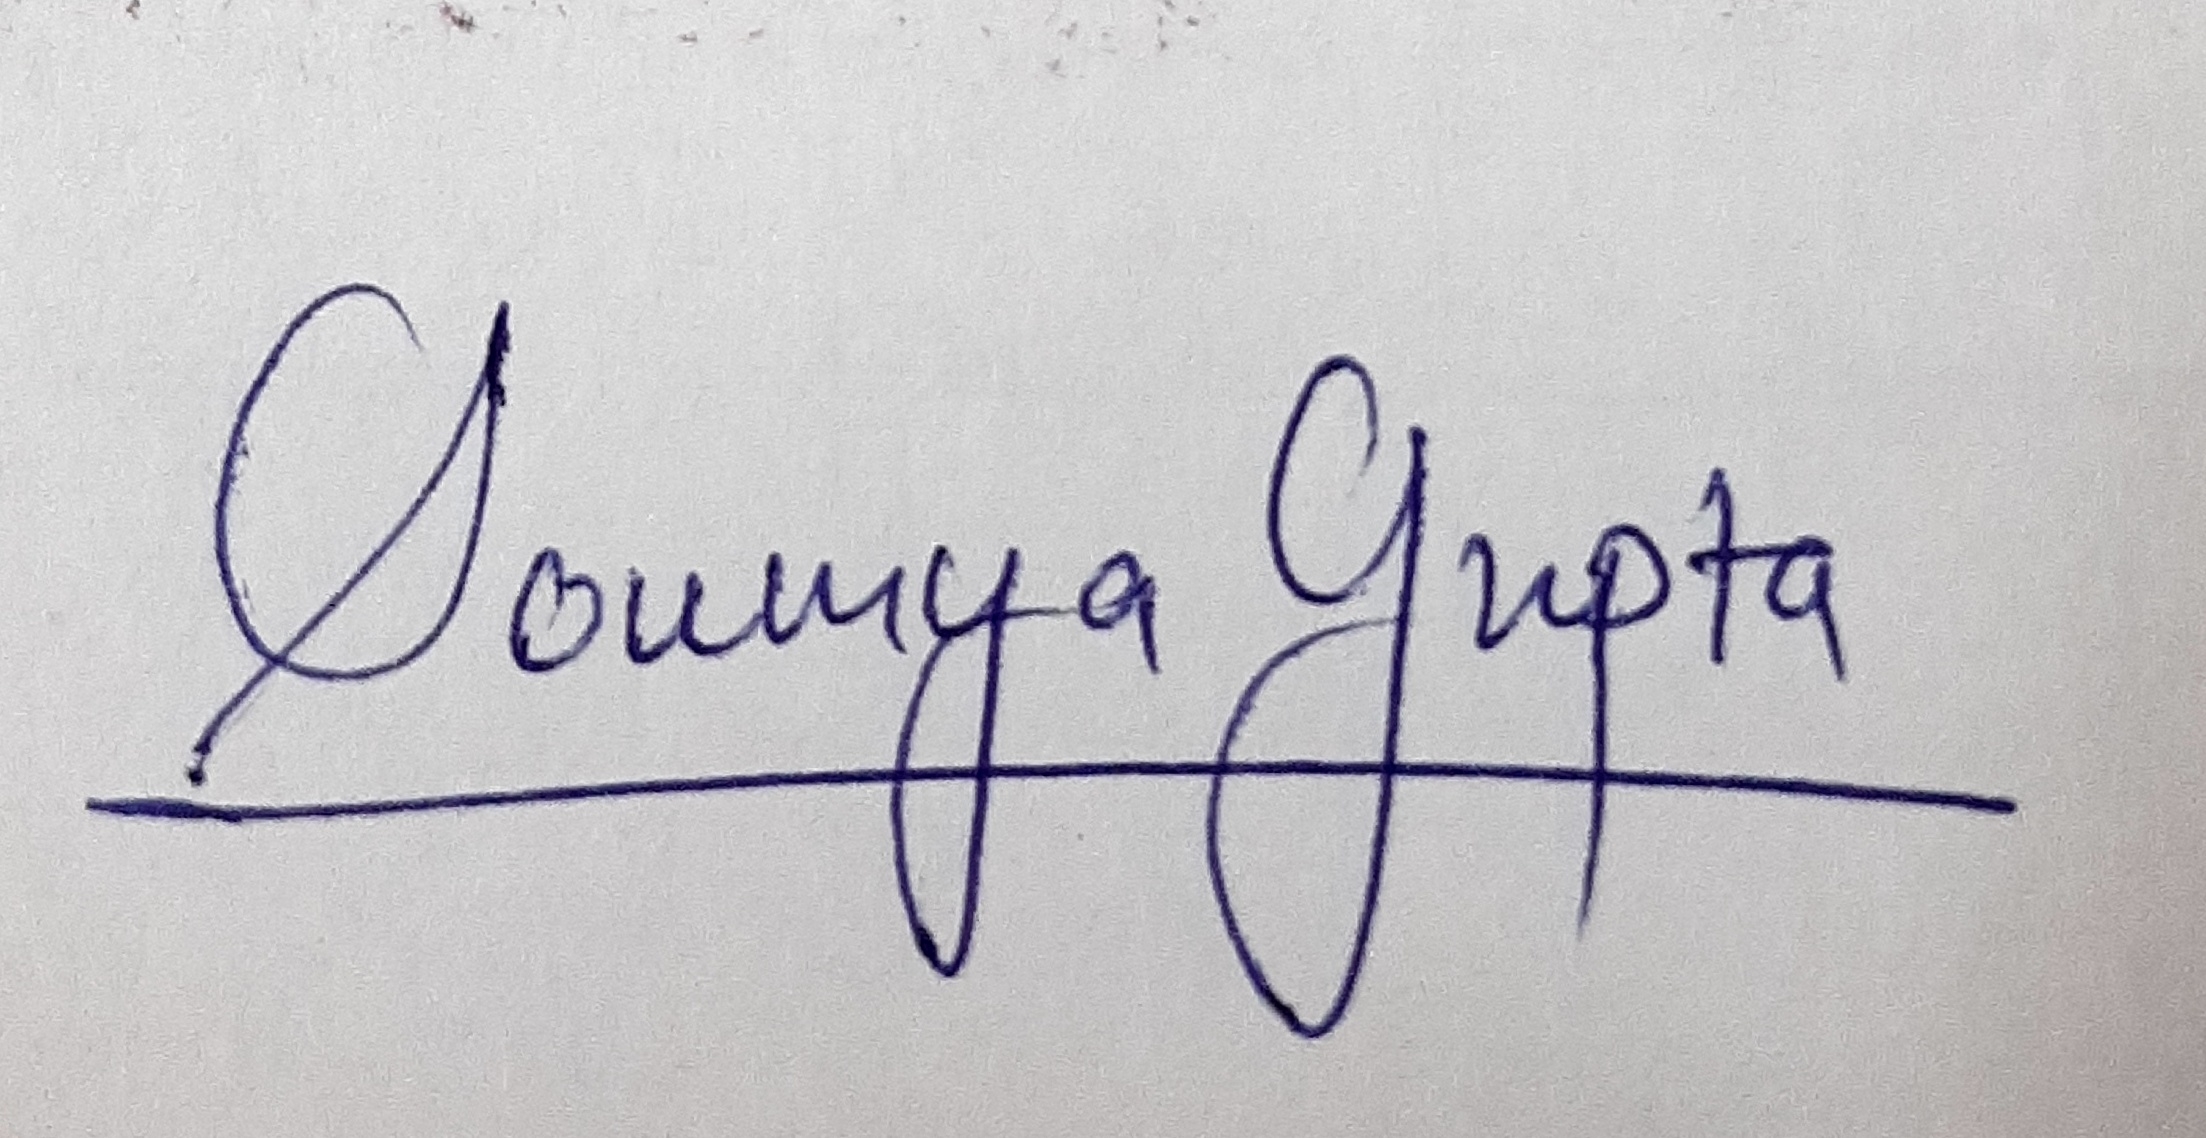 Soumya Gupta